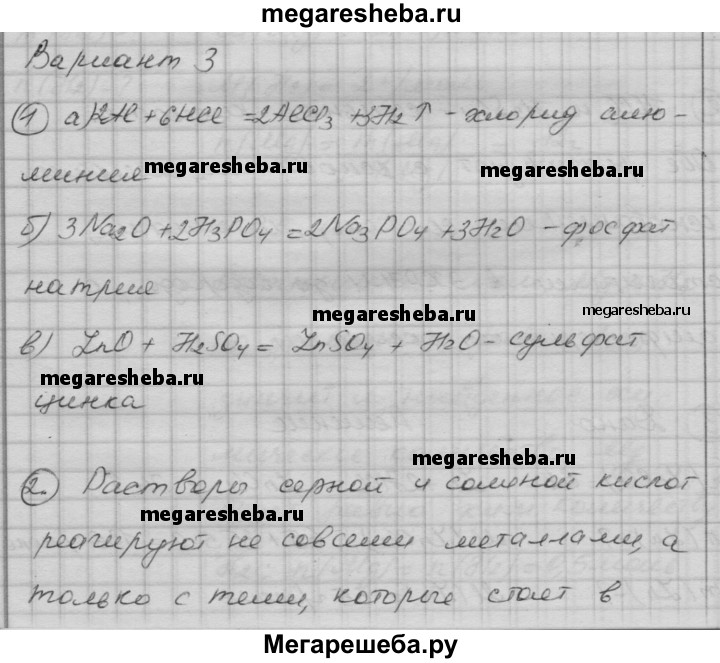 megaresheba.ru
Вариант 3
1 а) 2Al + 6HCl = 2AlCl3 + 3H2↑ - хлорид алю-
миния
megaresheba.ru
megaresheba.ru
б) 3Na2O + 2H3PO4 = 2Na3PO4 + 3H2O - фосфат
натрия
megaresheba.ru
megaresheba.ru
в) ZnO + H2SO4 = ZnSO4 + H2O - сульфат
megaresheba.ru
цинка
megaresheba.ru
2. Растворы серной и соляной кислот
megaresheba.ru
реагируют не со всеми металлами, а
только с теми, которые стоят в
Мегарешеба.ру